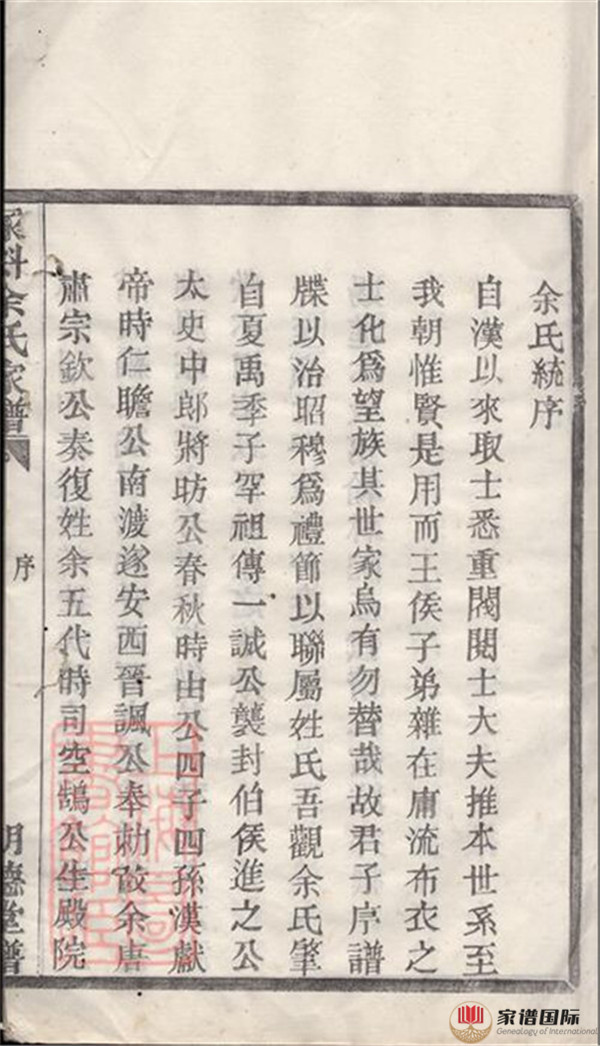 余氏統序
自漢以來取士悉重閥閱士大夫推本世系至
我朝惟賢是用而王侯子弟雜在庸流布衣之
士化爲望族其世家烏有勿替哉故君子序譜
牒以治昭穆爲禮節以聯屬姓氏吾觀余氏肇
自夏禹季子罕祖傳一誠公襲封伯侯進之公
太史中郎將昉公春秋時由公四子四孫漢獻
帝時仁瞻公南渡遂安西晉諷公奉勅改余唐
肅宗欽公奏復姓余五代時司空鵠公生殿院
余氏家譜
序
明德堂譜
家谱国际
Genealogy of International